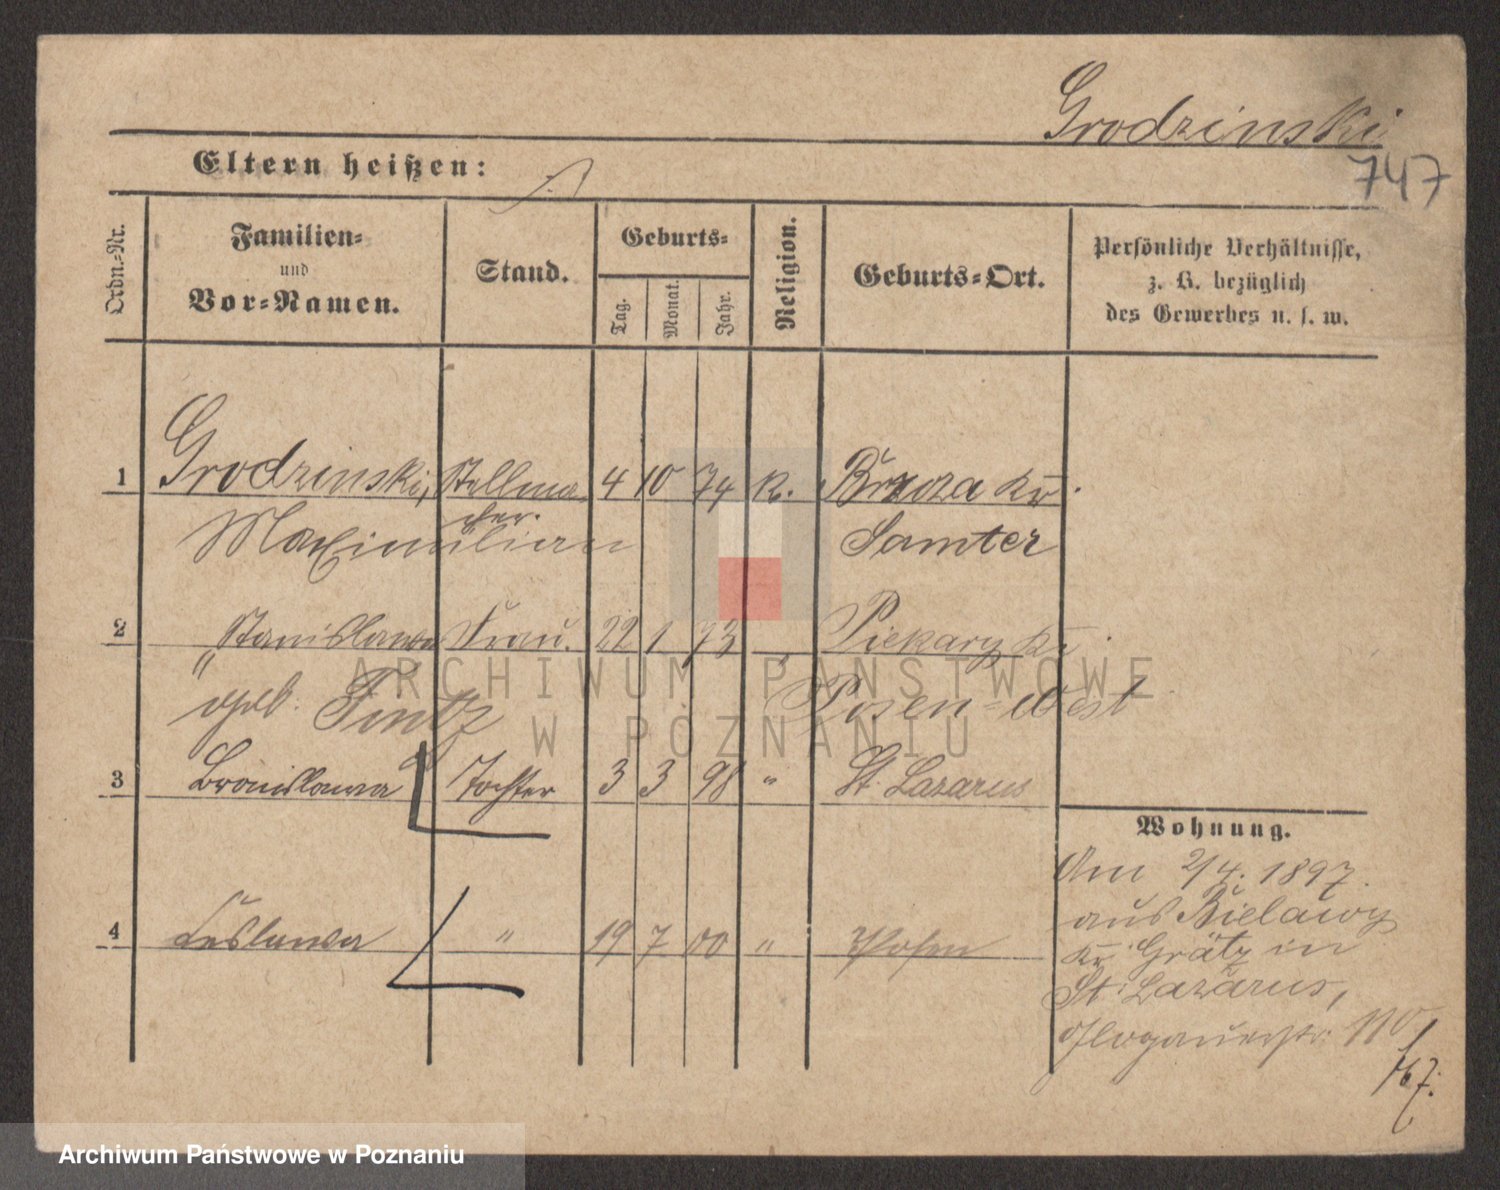 Grodzinski
747
Eltern heißen:
Ordn.-Nr.
Familien-
und
Vor-Namen.
Stand.
Geburts-
Tag.
Monat.
Jahr.
Religion.
Geburts-Ort.
Persönliche Verhältnisse,
z. B. bezüglich
des Gewerbes u. s. w.
1 Grodzinski, Stellma- 4 10 74 K. Brzoza Kr.
cher.
Maximilian Samter
2 " Stanislawa Frau. 22 1 73 " Piekary Kr.
geb. Posen-West
3 Bronislawa Tochter 3 3 98 " St. Lazarus
4 Ceslawa " 19 7 00 " Posen
Wohnung.
Am 2/4. 1897.
aus Bielawy
Kr. Grätz in
St. Lazarus,
Glogauerstr. 110
ARCHIWUM PAŃSTWOWE
W POZNANIU
Archiwum Państwowe w Poznaniu